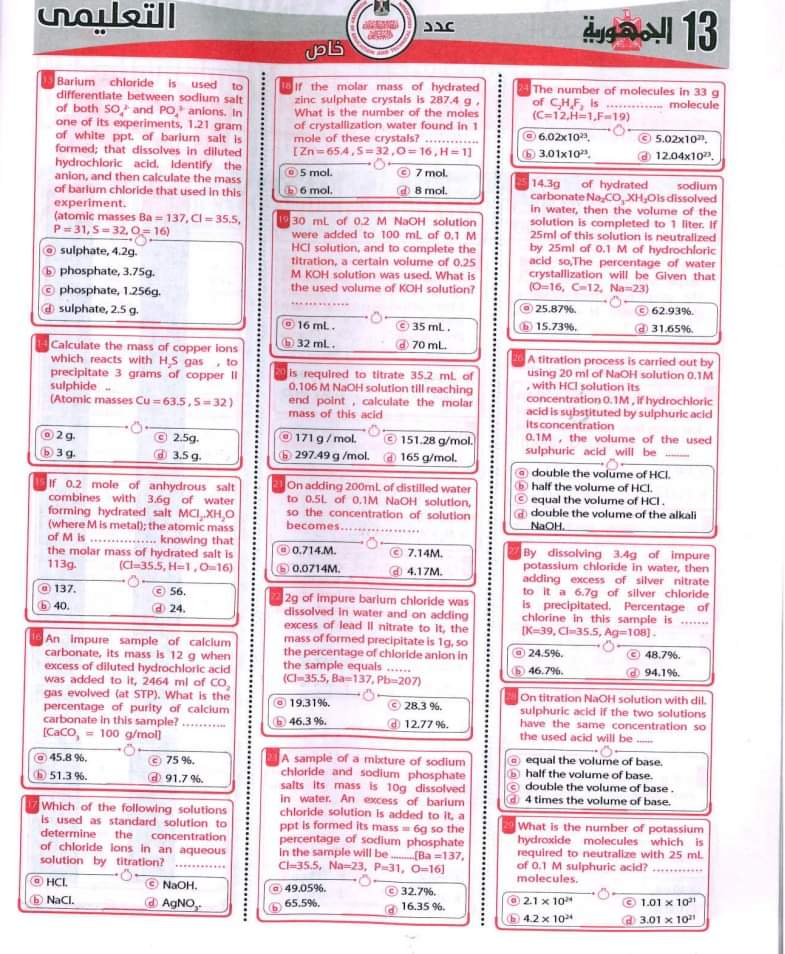 التعليمى
عدد
خاص
الجمهورية 13
13 Barium chloride is used to
differentiate between sodium salt
of both SO₄²⁻ and PO₄³⁻ anions. In
one of its experiments, 1.21 gram
of white ppt. of barium salt is
formed; that dissolves in diluted
hydrochloric acid. Identify the
anion, and then calculate the mass
of barium chloride that used in this
experiment.
(atomic masses Ba = 137, Cl = 35.5,
P = 31, S = 32, O = 16)
ⓐ sulphate, 4.2g.
ⓑ phosphate, 3.75g.
ⓒ phosphate, 1.256g.
ⓓ sulphate, 2.5 g.
14 Calculate the mass of copper ions
which reacts with H₂S gas , to
precipitate 3 grams of copper II
sulphide ..
(Atomic masses Cu = 63.5 , S = 32 )
ⓐ 2 g. ⓒ 2.5g.
ⓑ 3 g. ⓓ 3.5 g.
15 If 0.2 mole of anhydrous salt
combines with 3.6g of water
forming hydrated salt MCl₂.XH₂O
(where M is metal); the atomic mass
of M is ................ knowing that
the molar mass of hydrated salt is
113g. (Cl=35.5, H=1 , O=16)
ⓐ 137. ⓒ 56.
ⓑ 40. ⓓ 24.
16 An impure sample of calcium
carbonate, its mass is 12 g when
excess of diluted hydrochloric acid
was added to it, 2464 ml of CO₂
gas evolved (at STP). What is the
percentage of purity of calcium
carbonate in this sample? ...........
[CaCO₃ = 100 g/mol]
ⓐ 45.8 %. ⓒ 75 %.
ⓑ 51.3 %. ⓓ 91.7 %.
17 Which of the following solutions
is used as standard solution to
determine the concentration
of chloride ions in an aqueous
solution by titration? ............
ⓐ HCl. ⓒ NaOH.
ⓑ NaCl. ⓓ AgNO₃.
18 If the molar mass of hydrated
zinc sulphate crystals is 287.4 g ,
What is the number of the moles
of crystallization water found in 1
mole of these crystals? .............
[ Zn = 65.4 , S = 32 , O = 16 , H = 1 ]
ⓐ 5 mol. ⓒ 7 mol.
ⓑ 6 mol. ⓓ 8 mol.
19 30 mL of 0.2 M NaOH solution
were added to 100 mL of 0.1 M
HCl solution, and to complete the
titration, a certain volume of 0.25
M KOH solution was used. What is
the used volume of KOH solution?
............
ⓐ 16 mL . ⓒ 35 mL .
ⓑ 32 mL . ⓓ 70 mL.
20 is required to titrate 35.2 mL of
0.106 M NaOH solution till reaching
end point , calculate the molar
mass of this acid
ⓐ 171 g / mol. ⓒ 151.28 g/mol.
ⓑ 297.49 g /mol. ⓓ 165 g/mol.
21 On adding 200mL of distilled water
to 0.5L of 0.1M NaOH solution,
so the concentration of solution
becomes..................
ⓐ 0.714.M. ⓒ 7.14M.
ⓑ 0.0714M. ⓓ 4.17M.
22 2g of impure barium chloride was
dissolved in water and on adding
excess of lead II nitrate to it, the
mass of formed precipitate is 1g, so
the percentage of chloride anion in
the sample equals ......
(Cl=35.5, Ba=137, Pb=207)
ⓐ 19.31%. ⓒ 28.3 %.
ⓑ 46.3 %. ⓓ 12.77 %.
23 A sample of a mixture of sodium
chloride and sodium phosphate
salts its mass is 10g dissolved
in water. An excess of barium
chloride solution is added to it, a
ppt is formed its mass = 6g so the
percentage of sodium phosphate
in the sample will be .........[Ba =137,
Cl=35.5, Na=23, P=31, O=16]
ⓐ 49.05%. ⓒ 32.7%.
ⓑ 65.5%. ⓓ 16.35 %.
24 The number of molecules in 33 g
of C₂H₄F₂ is .............. molecule
(C=12,H=1,F=19)
ⓐ 6.02x10²³. ⓒ 5.02x10²³.
ⓑ 3.01x10²³. ⓓ 12.04x10²³.
25 14.3g of hydrated sodium
carbonate Na₂CO₃.XH₂O is dissolved
in water, then the volume of the
solution is completed to 1 liter. If
25ml of this solution is neutralized
by 25ml of 0.1 M of hydrochloric
acid so,The percentage of water
crystallization will be Given that
(O=16, C=12, Na=23)
ⓐ 25.87%. ⓒ 62.93%.
ⓑ 15.73%. ⓓ 31.65%.
26 A titration process is carried out by
using 20 ml of NaOH solution 0.1M
, with HCl solution its
concentration 0.1M , if hydrochloric
acid is substituted by sulphuric acid
its concentration
0.1M , the volume of the used
sulphuric acid will be ........
ⓐ double the volume of HCl.
ⓑ half the volume of HCl.
ⓒ equal the volume of HCl .
ⓓ double the volume of the alkali
NaOH.
27 By dissolving 3.4g of impure
potassium chloride in water, then
adding excess of silver nitrate
to it a 6.7g of silver chloride
is precipitated. Percentage of
chlorine in this sample is .......
[K=39, Cl=35.5, Ag=108] .
ⓐ 24.5%. ⓒ 48.7%.
ⓑ 46.7%. ⓓ 94.1%.
28 On titration NaOH solution with dil.
sulphuric acid if the two solutions
have the same concentration so
the used acid will be ......
ⓐ equal the volume of base.
ⓑ half the volume of base.
ⓒ double the volume of base .
ⓓ 4 times the volume of base.
29 What is the number of potassium
hydroxide molecules which is
required to neutralize with 25 mL
of 0.1 M sulphuric acid? ............
molecules.
ⓐ 2.1 x 10²⁴ ⓒ 1.01 x 10²¹
ⓑ 4.2 x 10²⁴ ⓓ 3.01 x 10²¹